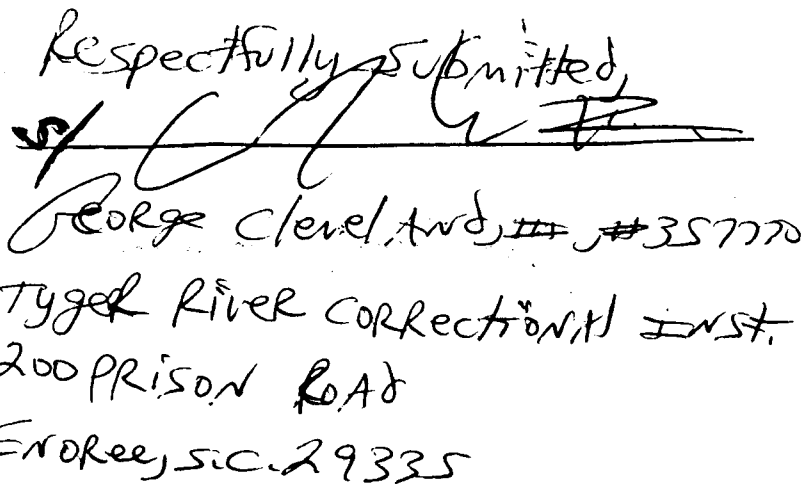 Respectfully Submitted,
S/
George Cleveland, III, #357770
Tyger River Correctional Inst.
200 Prison Road
Enoree, S.C. 29335